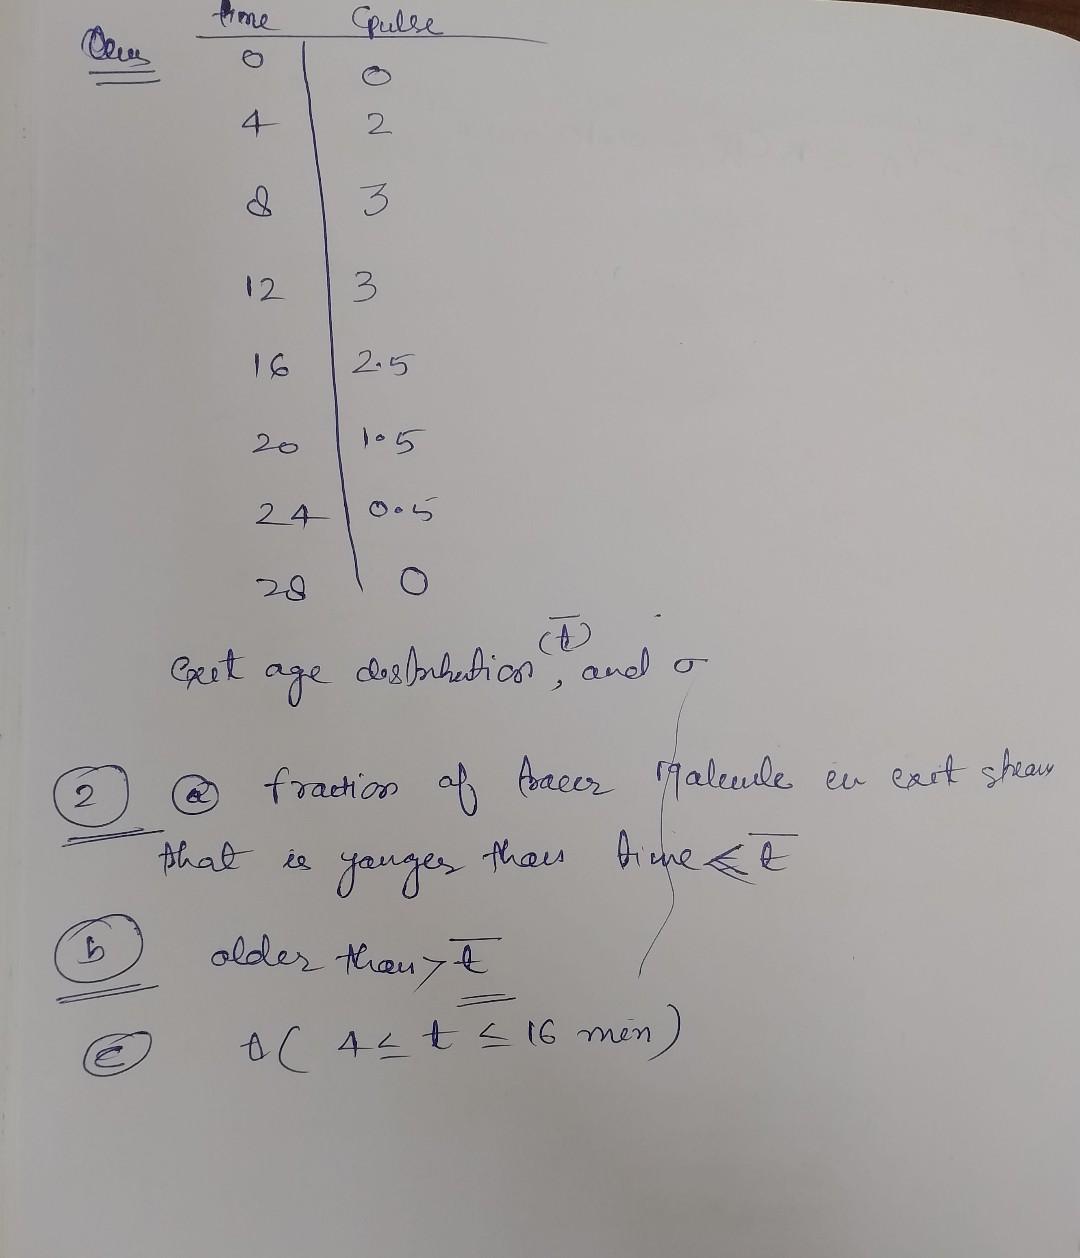 Ques
time Cpulse
0 0
4 2
8 3
12 3
16 2.5
20 1.5
24 0.5
28 0
(t̅)
Exit age distribution, and σ
2 a fraction of tracer Malecule in exit stream
that is younger than time < t̅
b older than > t̅
c t( 4 ≤ t ≤ 16 min)